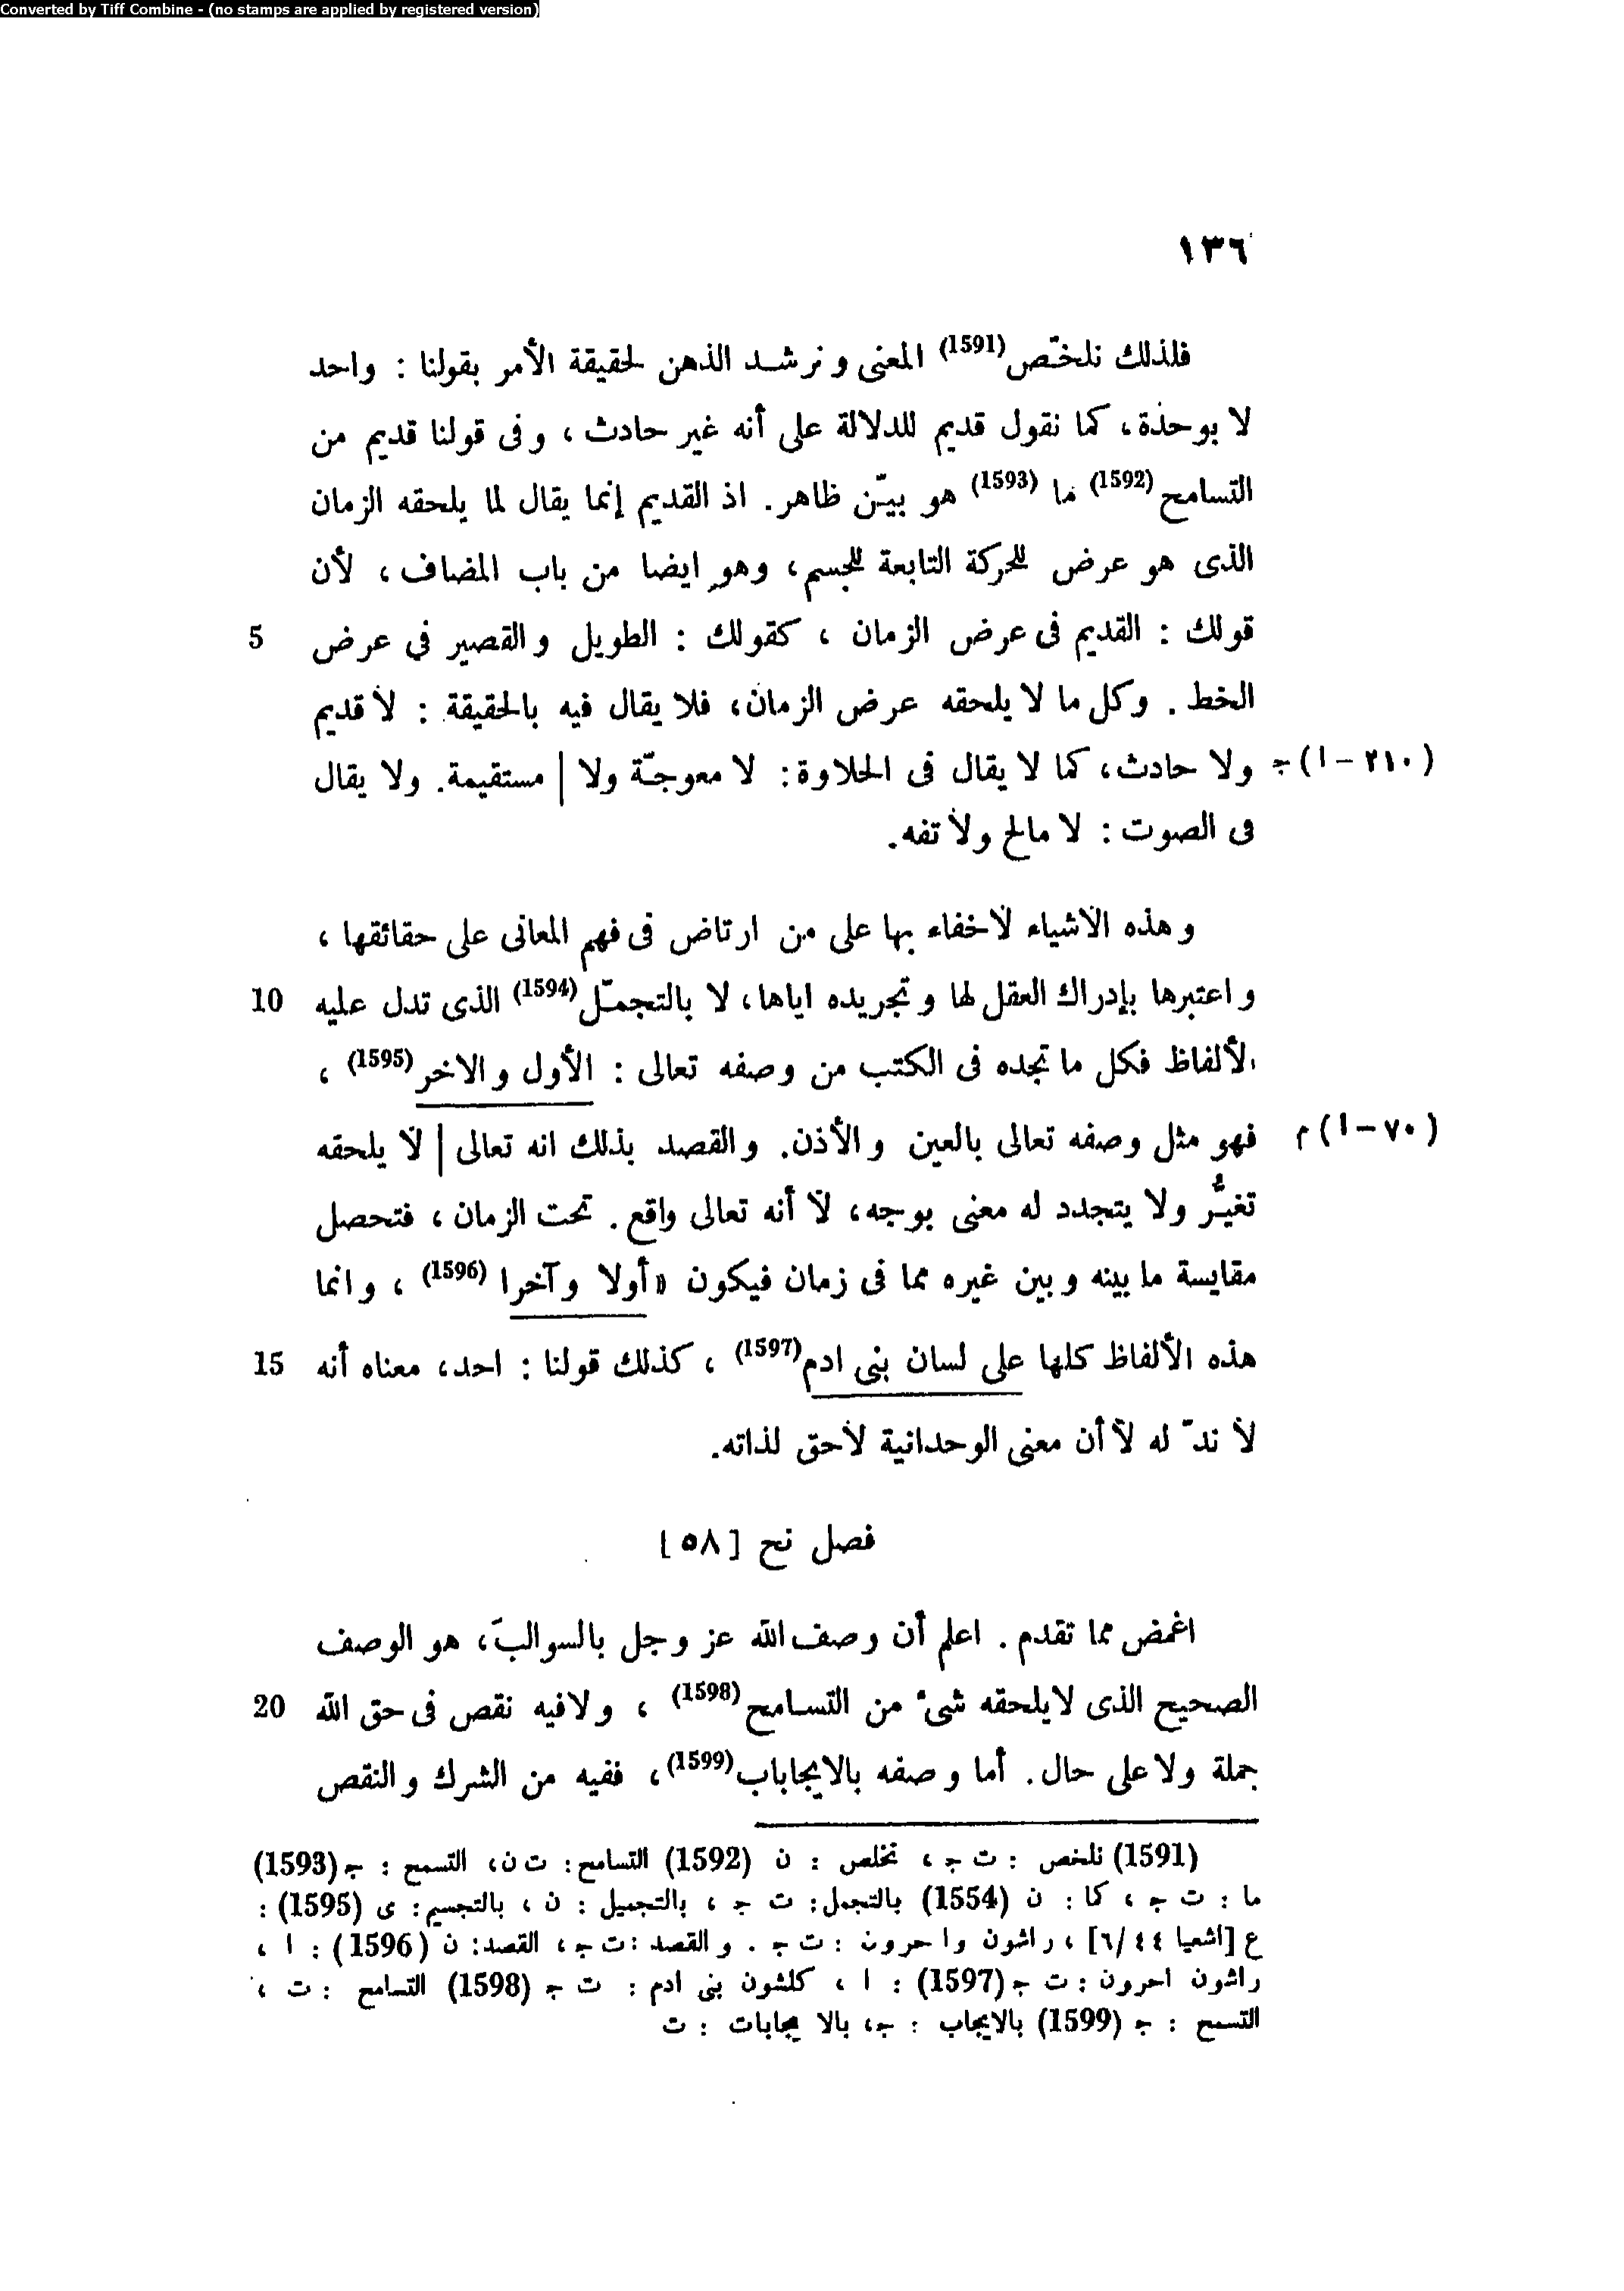 Converted by Tiff Combine - (no stamps are applied by registered version)
١٣٦
فلذلك نلخّص(1591) المعنى و نرشد الذهن لحقيقة الأمر بقولنا : واحد
لا بوحدة، كما نقول قديم للدلالة على أنه غير حادث ، وفى قولنا قديم من
التسامح(1592) ما (1593) هو بيّن ظاهر. اذ القديم إنما يقال لما يلحقه الزمان
الذى هو عرض للحركة التابعة للجسم، وهو ايضا من باب المضاف ، لأن
قولك : القديم فى عرض الزمان ، كقولك : الطويل والقصير في عرض 5
الخط . وكل ما لا يلحقه عرض الزمان، فلا يقال فيه بالحقيقة : لا قديم
(٢١٠ - ا) ج ولا حادث، كما لا يقال فى الحلاوة: لا معوجّة ولا | مستقيمة. ولا يقال
فى الصوت : لا مالح ولا تفه.
وهذه الأشياء لاخفاء بها على من ارتاض فى فهم المعانى على حقائقها ،
واعتبرها بإدراك العقل لها وتجريده اياها، لا بالتجمّل(1594) الذى تدل عليه 10
الألفاظ فكل ما تجده فى الكتب من وصفه تعالى : الأول والاخر(1595) ،
(٧٠ - ا) م فهو مثل وصفه تعالى بالعين والأذن. والقصد بذلك انه تعالى | لا يلحقه
تغيُّر ولا يتجدد له معنى بوجه، لا أنه تعالى واقع. تحت الزمان ، فتحصل
مقايسة ما بينه وبين غيره مما فى زمان فيكون «أولا وآخرا (1596) ، وانما
هذه الألفاظ كلها على لسان بنى ادم(1597) ، كذلك قولنا : احد، معناه أنه 15
لا ندّ له لا أن معنى الوحدانية لاحق لذاته.
فصل نح [٥٨]
اغمض مما تقدم . اعلم أن وصف الله عز وجل بالسوالب، هو الوصف
الصحيح الذى لايلحقه شىء من التسامح(1598) ، ولافيه نقص فى حق الله 20
جملة ولا على حال. أما وصفه بالايجاباب(1599)، ففيه من الشرك والنقص
(1591) نلخص : ت ج ، تخلص : ن (1592) التسامح: ت ن، التسمح : ج (1593)
ما : ت ج ، كا : ن (1554) بالتجمل: ت ج ، بالتجميل : ن ، بالتجسيم: ى (1595) :
ع [اشعيا ٤٤ /٦] ، راشون واحرون : ت ج . والقصد :ت ج، القصد: ن (1596) : ا ،
راشون احرون : ت ج (1597) : ا ، كلشون بنى ادم : ت ج (1598) التسامح : ت ،
التسمح : ج (1599) بالايجاب : ج، بالا يجابات : ت